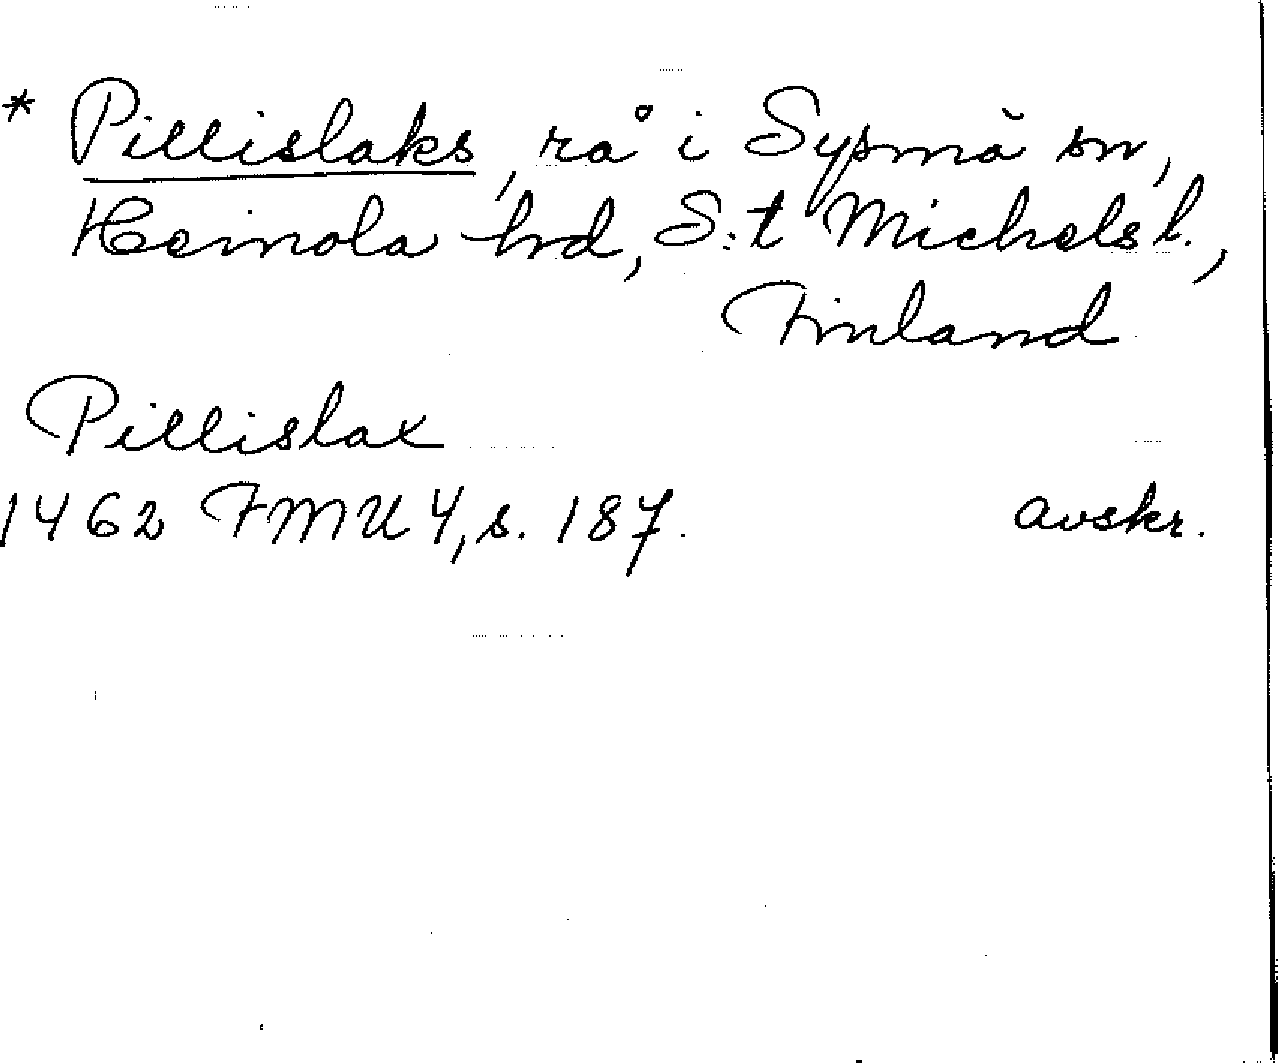 * Pillislaks, rå i Sysmä sn,
Heinola hd, S:t Michels l.,
Finland
Pillislax
1462 FMU 4, s. 187. avskr.